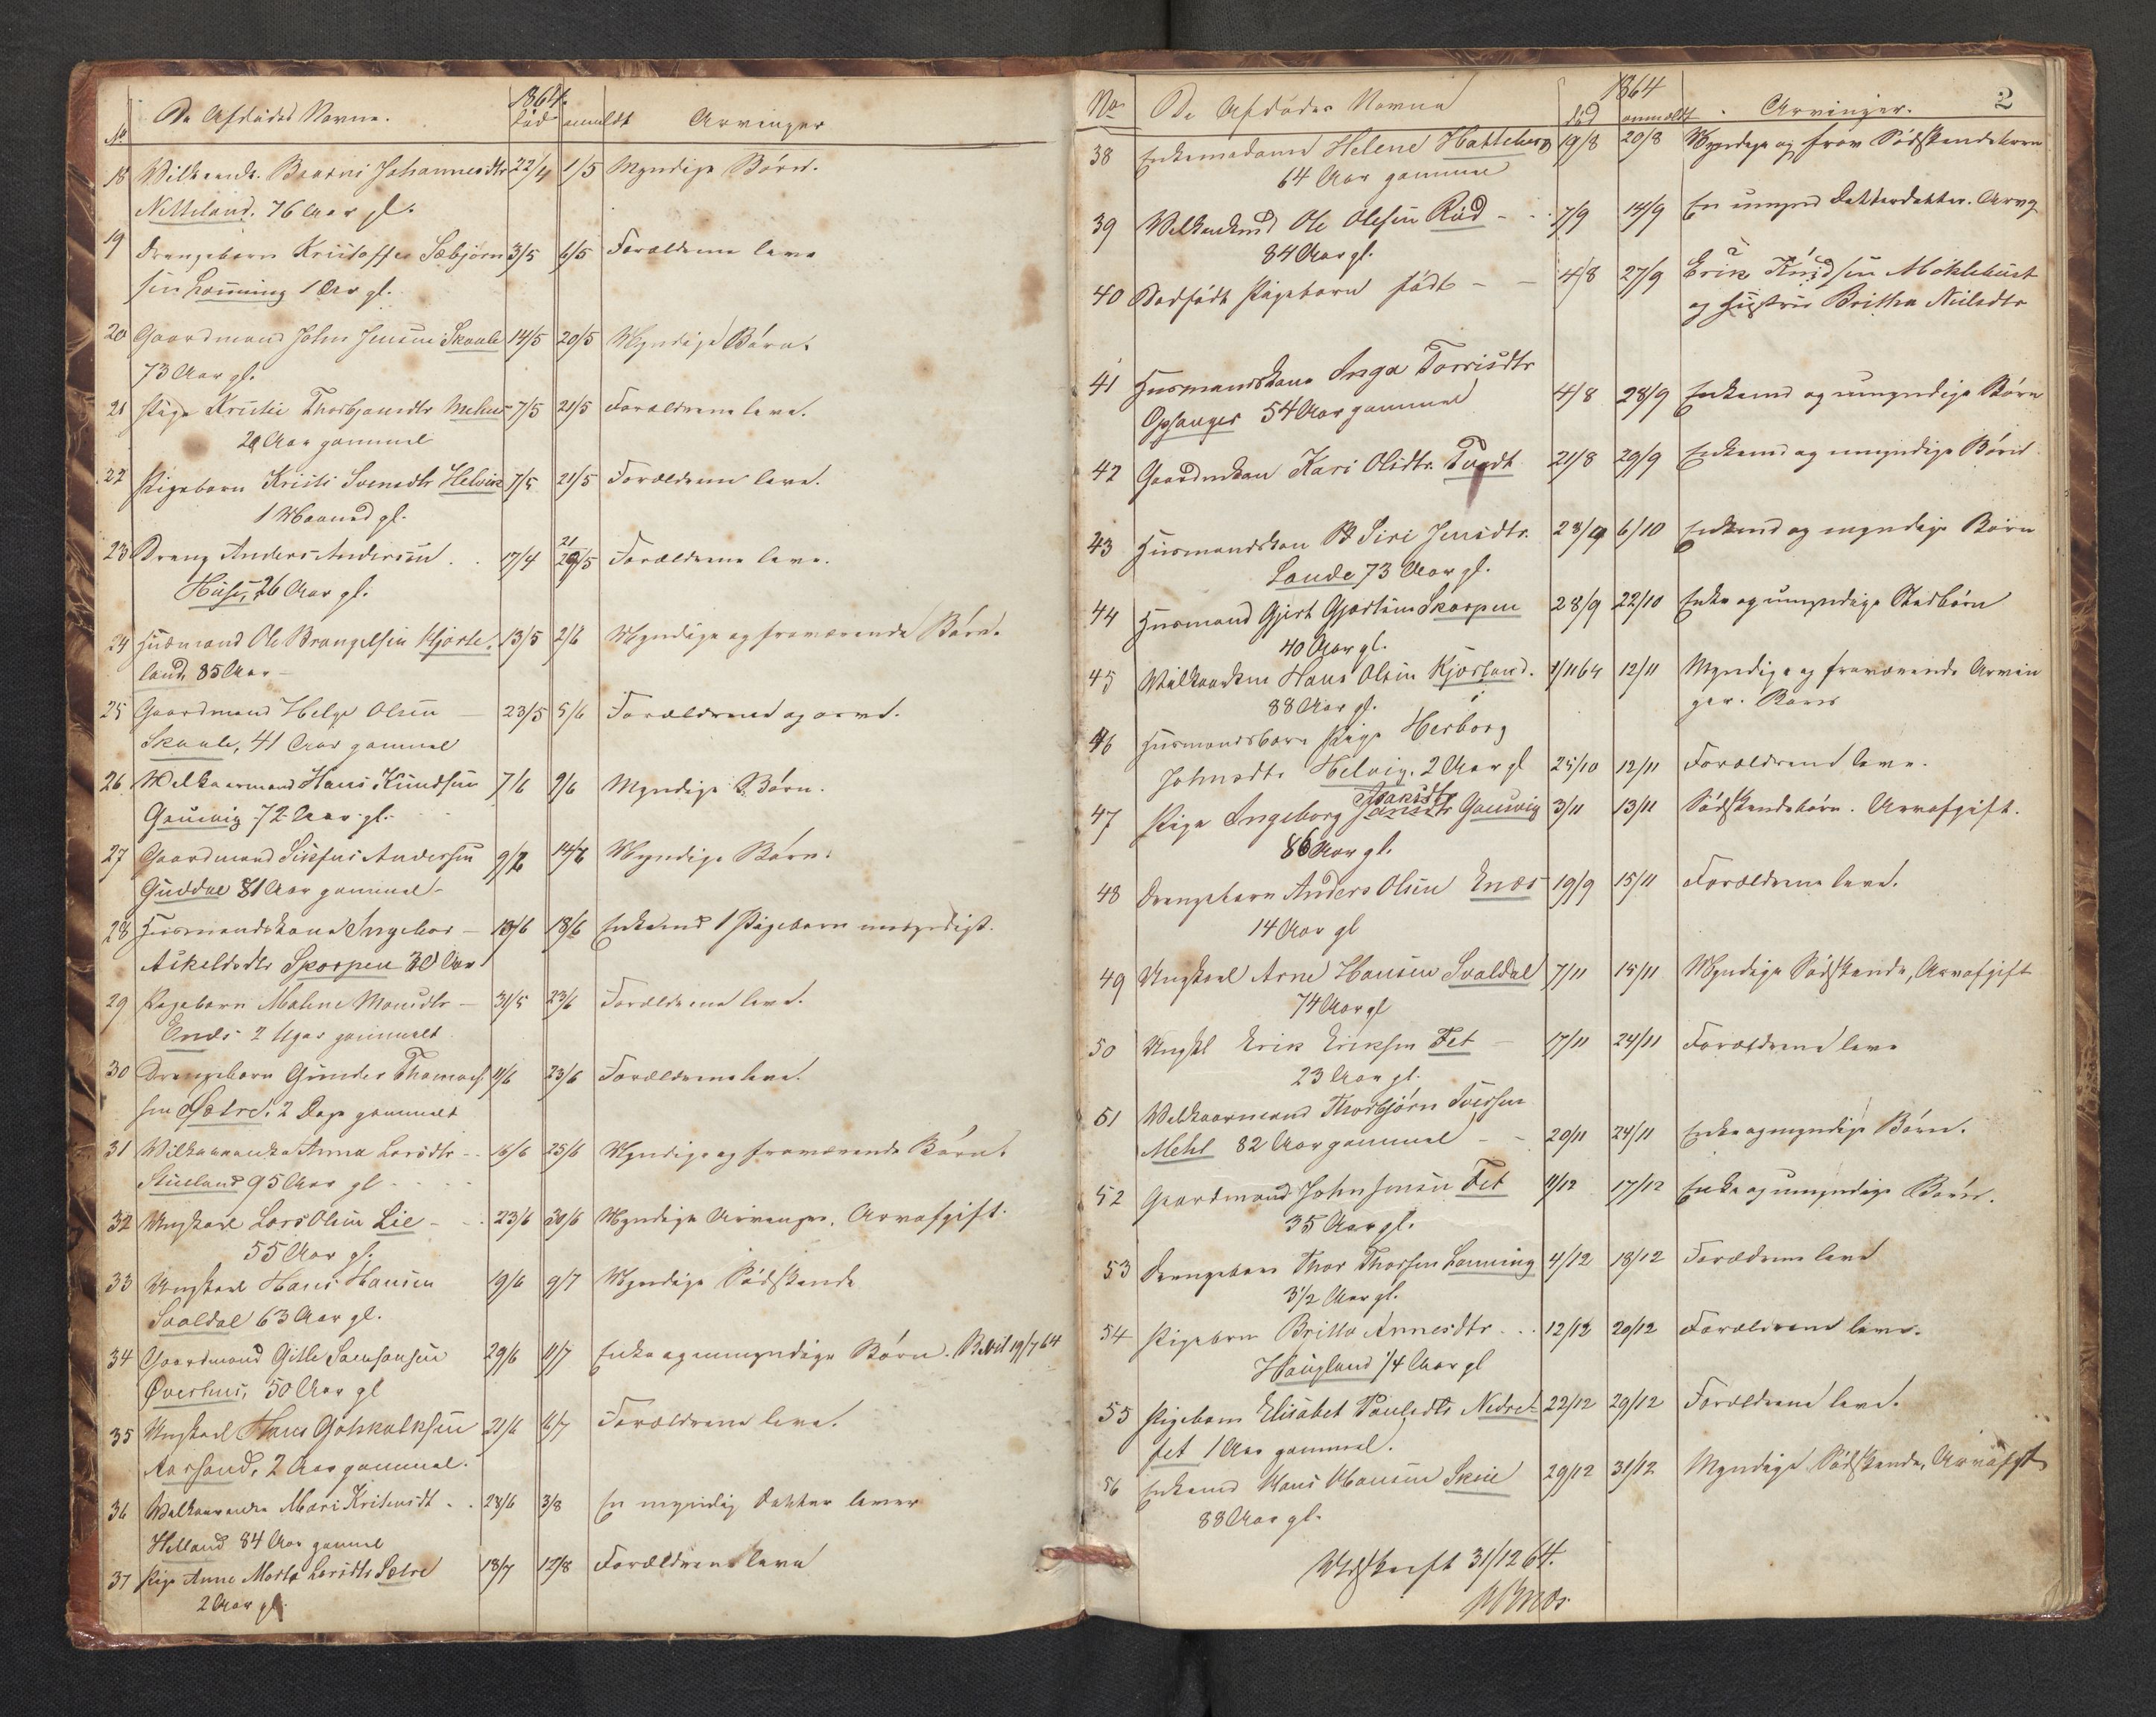 No
De Afdødes Navne.
1864.
død
anmeldt
Arvinger
18 Vilkaarsk. Brørni Johannesdtr 22/4 1/5 Myndige Børn.
Netteland, 76 Aar gl.
19 Drengebarn Kristoffer Sæbjørn 3/5 6/5 Forældrene leve
sen Lønning 1 Aar gl.
20 Gaardmand John Jensen Skaale 14/5 20/5 Myndige Børn.
73 Aar gl.
21 Pige Kristie Thorbjørnsdtr Mehus 7/5 21/5 Forældrene leve.
20 Aar gammel
22 Pigebarn Kristi Svensdtr Helvig 7/5 21/5 Forældrene leve.
1 Maaned gl.
23 Dreng Anders Andersen . . 17/4 21/5 Forældrene leve.
Huse, 26 Aar gl.
24 Husmand Ole Brangelsen Kjørte- 13/5 2/6 Myndige og fraværende Børn.
land, 85 Aar -
25 Gaardmand Helge Olsen - 23/5 5/6 Forældrene og arve.
Skaale, 41 Aar gammel
26 Vilkaarmand Hans Knudsen 7/6 9/6 Myndige Børn.
Gausvig 72 Aar gl.
27 Gaardmand Sixfus Andersen 9/6 14/6 Myndige Børn.
Guddal 81 Aar gammel -
28 Husmandskone Ingebor - 13/6 18/6 Enkemd 1 Pigebarn umyndigt.
Askeldsdtr Skorpen 30 Aar
29 Pigebarn Malene Monsdtr - 31/5 23/6 Forældrene leve.
Enæs 2 Uger gammelt
30 Drengebarn Gunder Thomas- 11/6 23/6 Forældrene leve.
sen Sætre, 2 Dage gammelt
31 Vilkaarsenke Anna Larsdtr - 16/6 25/6 Myndige og fraværende Børn.
Stueland 95 Aar gl
32 Ungkarl Lars Olsen Lie - . 23/6 30/6 Myndige Arvinger, Arvafgift.
55 Aar gl.
33 Ungkarl Hans Hansen 19/6 9/7 Myndige Sødskende
Svaldal 63 Aar gl.
34 Gaardmand Gitle Samsonsen 29/6 11/7 Enke og umyndige Børn. Bevil 19/7 64
Øverhus, 50 Aar gl
35 Ungkarl Hans Gotskalksen 21/6 11/7 Forældrene leve.
Aarsand, 2 Aar gammel.
36 Vilkaarsenke Mari Kristensdt . . 28/6 3/8 En myndig Datter lever
Helland 84 Aar gammel
37 Pige Anne Marta Larsdtr Sætre 18/7 12/8 Forældrene leve
2 Aar gl.
No
De Afdødes Navne
1864
død
anmeldt
Arvinger.
2
38 Enkemadame Helene Hatteberg 19/8 20/8 Myndige og frav Sødskendebørn
64 Aar gammel
39 Vilkaarsmd Ole Olesen Rød - . 7/9 14/9 En umynd Datterdatter. Arvg
84 Aar gl.
40 Dødfødt Pigebarn født - - 4/8 27/9 Erik Knudsen Møklebust
og Hustru Britha Nielsdtr
41 Husmandskone Inga Torrisdtr
Opsanger 54 Aar gammel 4/8 28/9 Enkemd og umyndige Børn
42 Gaardmdkone Kari Olsdtr. Tvedt 21/8 29/9 Enkemd og umyndige Børn
43 Husmandskon Siri Jensdtr. 23/9 6/10 Enkemd og myndige Børn
Sande 73 Aar gl.
44 Husmand Gjert Gjertsen Skorpen 28/9 22/10 Enke og umyndige Stedbørn
40 Aar gl.
45 Vilkaarsm Hans Olsen Kjørland. 1/11 64 12/11 Myndige og fraværende Arvin
88 Aar gl. ger. Børn
46 Husmandsbarn Pige Herborg
Johnsdtr Helvig. 2 Aar gl 25/10 12/11 Forældrene leve.
Isaksdtr
47 Pige Ingeborg Jansdtr Gausvig 3/11 13/11 Sødskendebørn. Arvafgift.
86 Aar gl.
48 Drengebarn Anders Olsen Enæs 19/9 15/11 Forældrene leve.
14 Aar gl
49 Ungkarl Arne Hansen Svaldal 7/11 15/11 Myndige Sødskende, Arvafgift
74 Aar gl
50 Ungkl Erik Eriksen Fet - 17/11 24/11 Forældrene leve
23 Aar gl.
51 Vilkaarmand Thorbjørn Iversen
Mehl 82 Aar gammel - - 20/11 24/11 Enke og myndige Børn.
52 Gaardmand John Jonsen Fet 11/12 17/12 Enke og umyndige Børn.
35 Aar gl.
53 Drengebarn Thor Thorsen Lønning 4/12 18/12 Forældrene leve
3 1/2 Aar gl.
54 Pigebarn Britta Annesdtr . . . 12/12 20/12 Forældrene leve.
Haugland 1/4 Aar gl
55 Pigebarn Elisabet Paulsdtr Nedre- 22/12 29/12 Forældrene leve.
fet 1 Aar gammel.
56 Enkemd Hans Hansen Skeie 29/12 31/12 Myndige Sødskende, Arvafgt
88 Aar gl.
Udskrift 31/12 64.